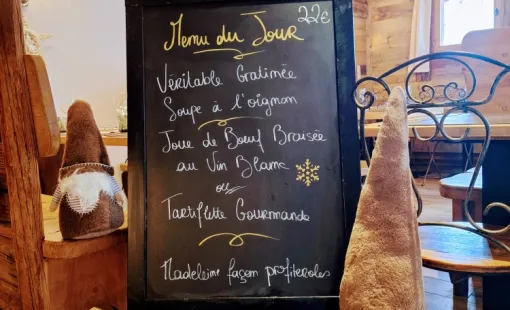 Menu du Jour 22€
Véritable Gratinée
Soupe à l'oignon
Joue de Boeuf Braisée
au Vin Blanc
ou
Tartiflette Gourmande
Madeleine façon profiteroles